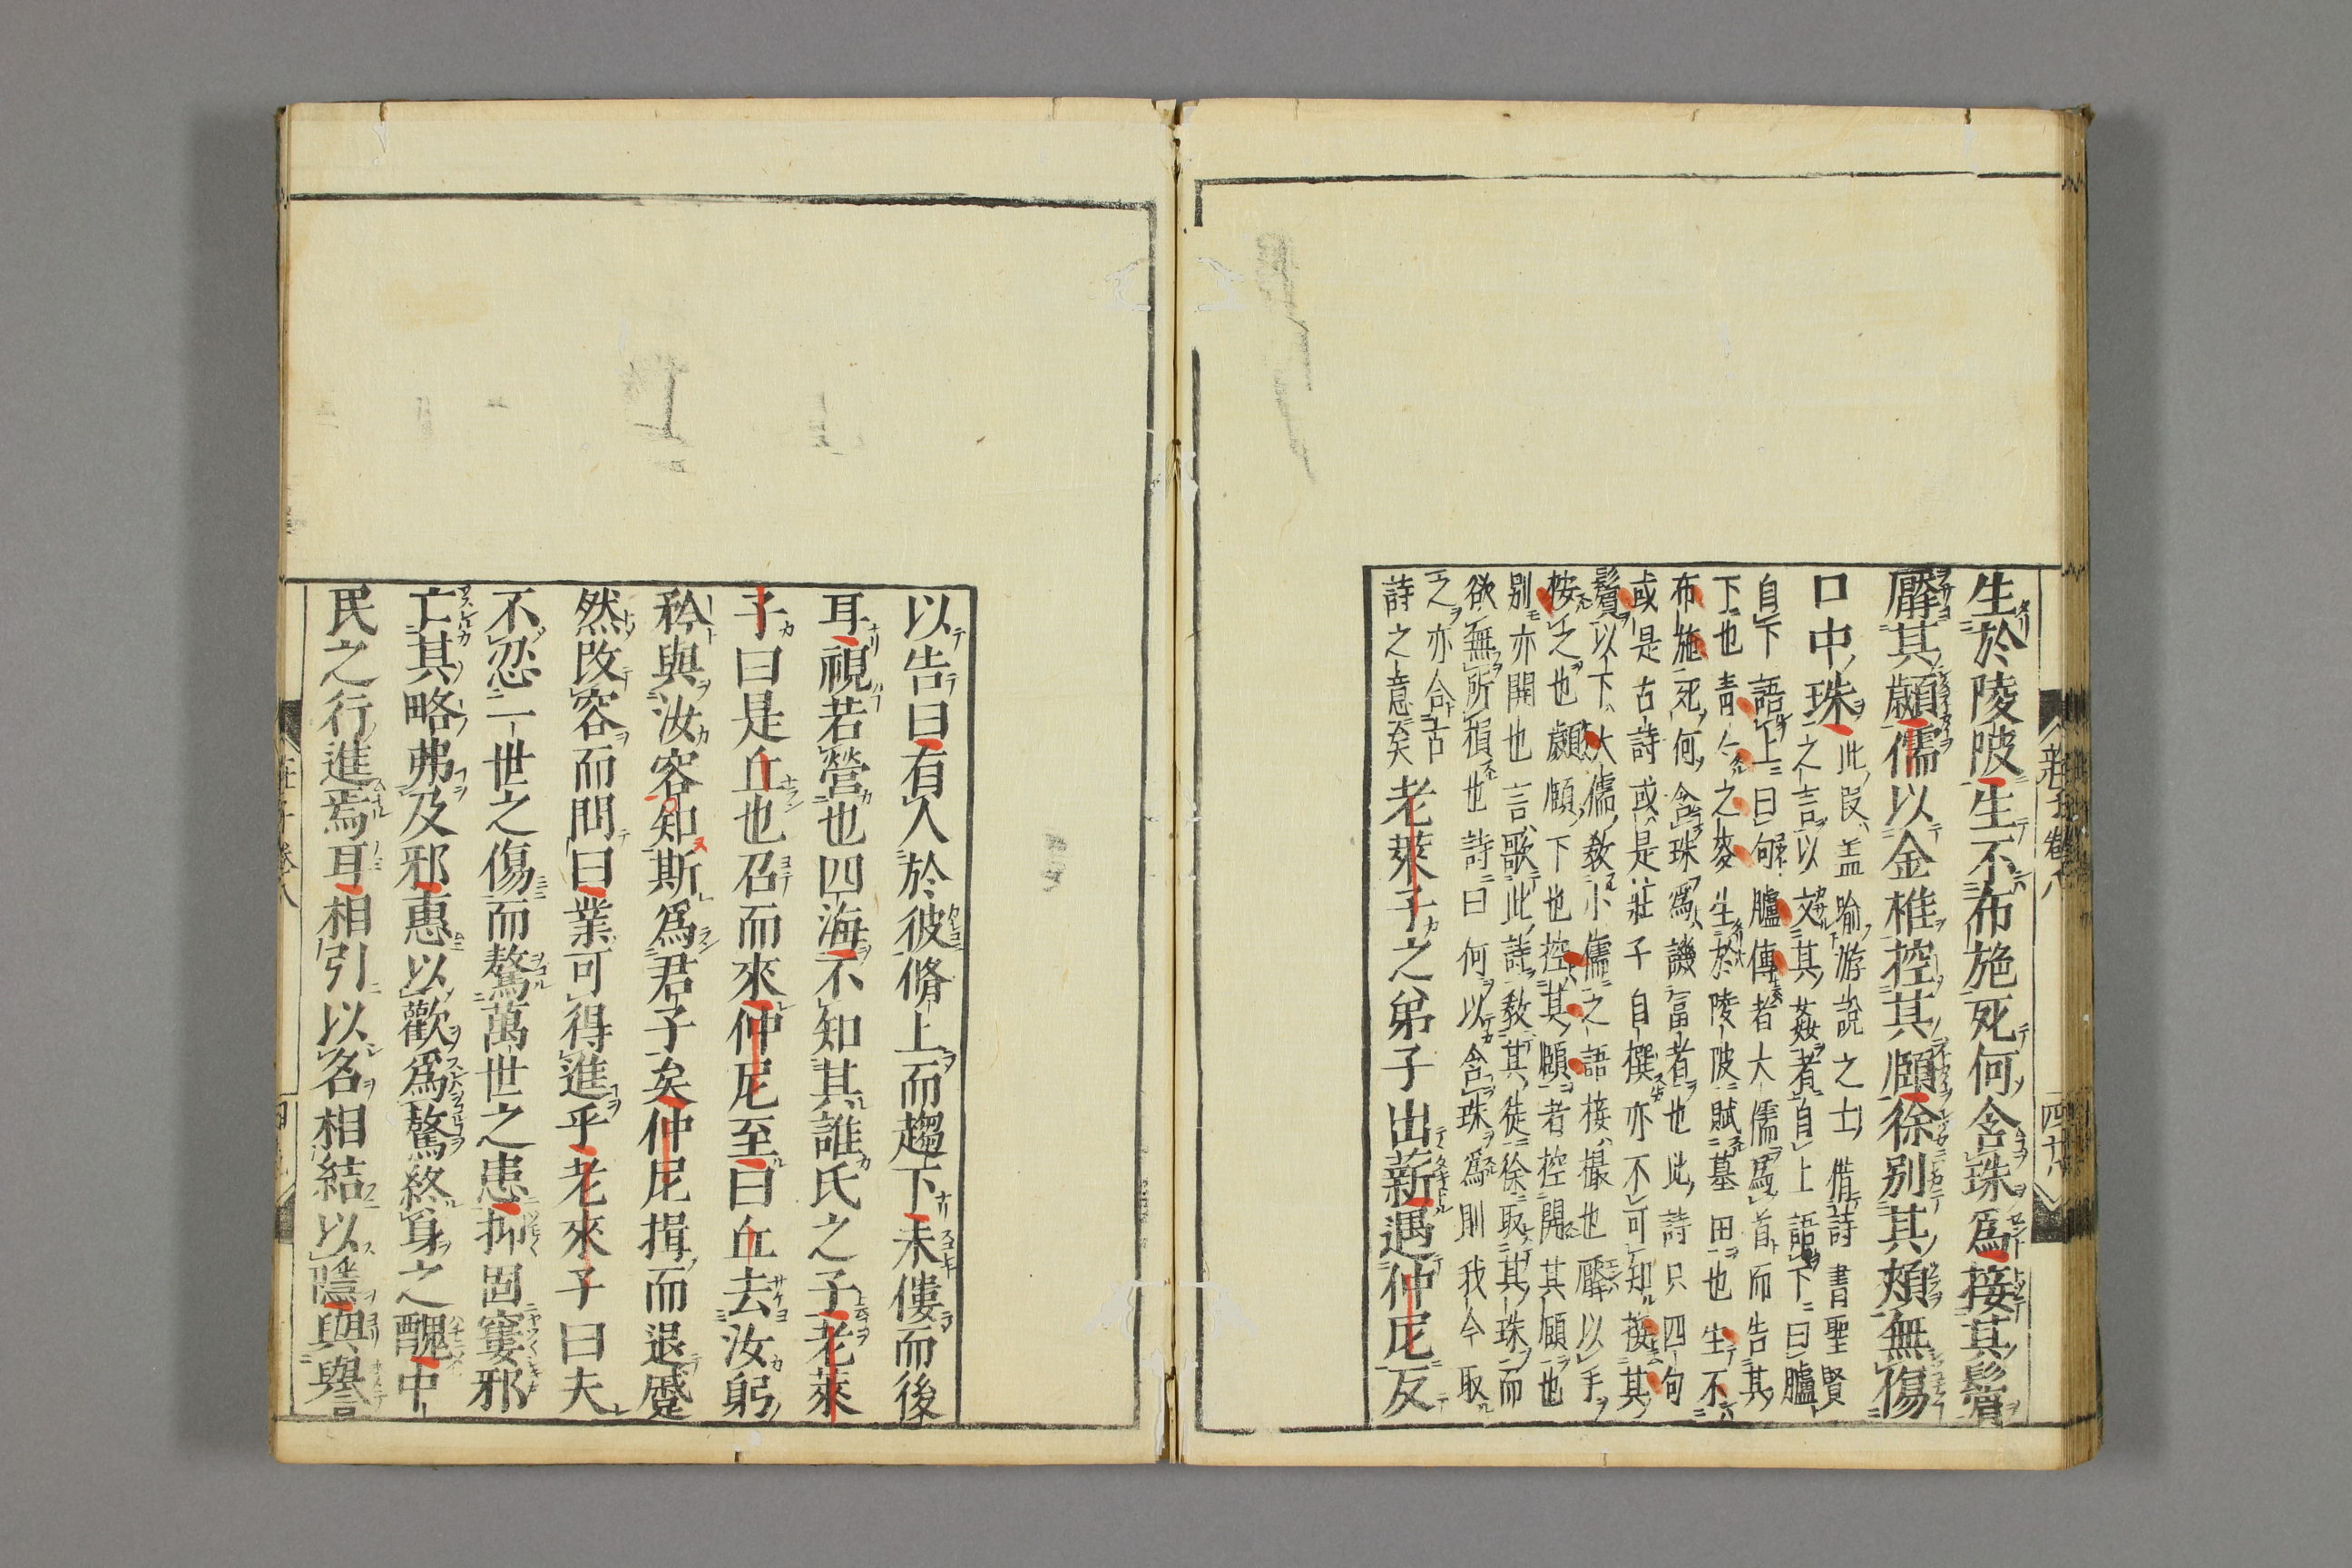 生於陵陂生不布施死何含珠爲接其鬢
擪其顪儒以金椎控其頤徐别其頰無傷
口中珠
此段盖喻游說之士借詩書聖賢
之言以文其姦者自上語下曰臚
自下語上曰句臚傳者大儒爲首而告其
下也青々之麥生於陵陂賦墓田也生不
布施死何含珠爲譏富者也此詩只四句
或是古詩或是莊子自撰亦不可知接其
鬢以下大儒教小儒之語接撮也擪以手
按之也顪頤下也控其頤者控開其頤也
别亦開也言歌此詩教其徒徐取其珠而
欲無所損也詩曰何以含珠爲則我今取
之亦合古
詩之意矣
老萊子之弟子出薪遇仲尼反
以告曰有人於彼脩上而趨下末僂而後
耳視若營四海不知其誰氏之子老萊
子曰是丘也召而來仲尼至曰丘去汝躬
矜與汝容知斯爲君子矣仲尼揖而退蹙
然改容而問曰業可得進乎老來子曰夫
不忍一世之傷而驁萬世之患抑固窶邪
亡其略弗及邪惠以歡爲驁終身之醜中
民之行進焉耳相引以名相結以隱與譽